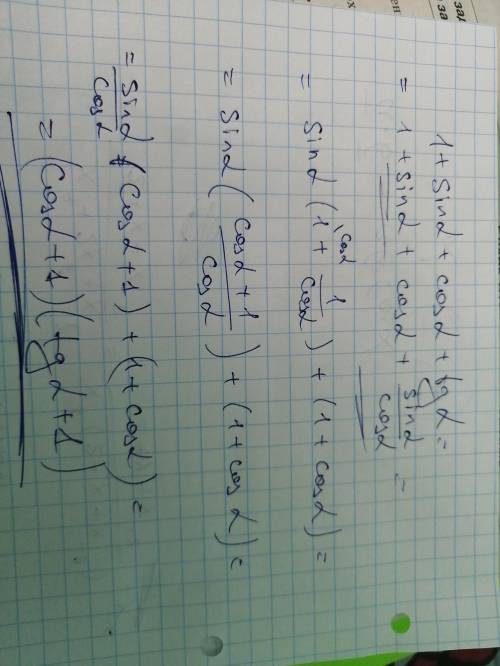 1 + sinα + cosα + tgα =
= 1 + sinα + cosα + sinα/cosα =
= sinα (1\cosα + 1/cosα) + (1 + cosα) =
= sinα (cosα + 1/cosα) + (1 + cosα) =
= sinα/cosα (cosα + 1) + (1 + cosα) =
= (cosα + 1)(tgα + 1)